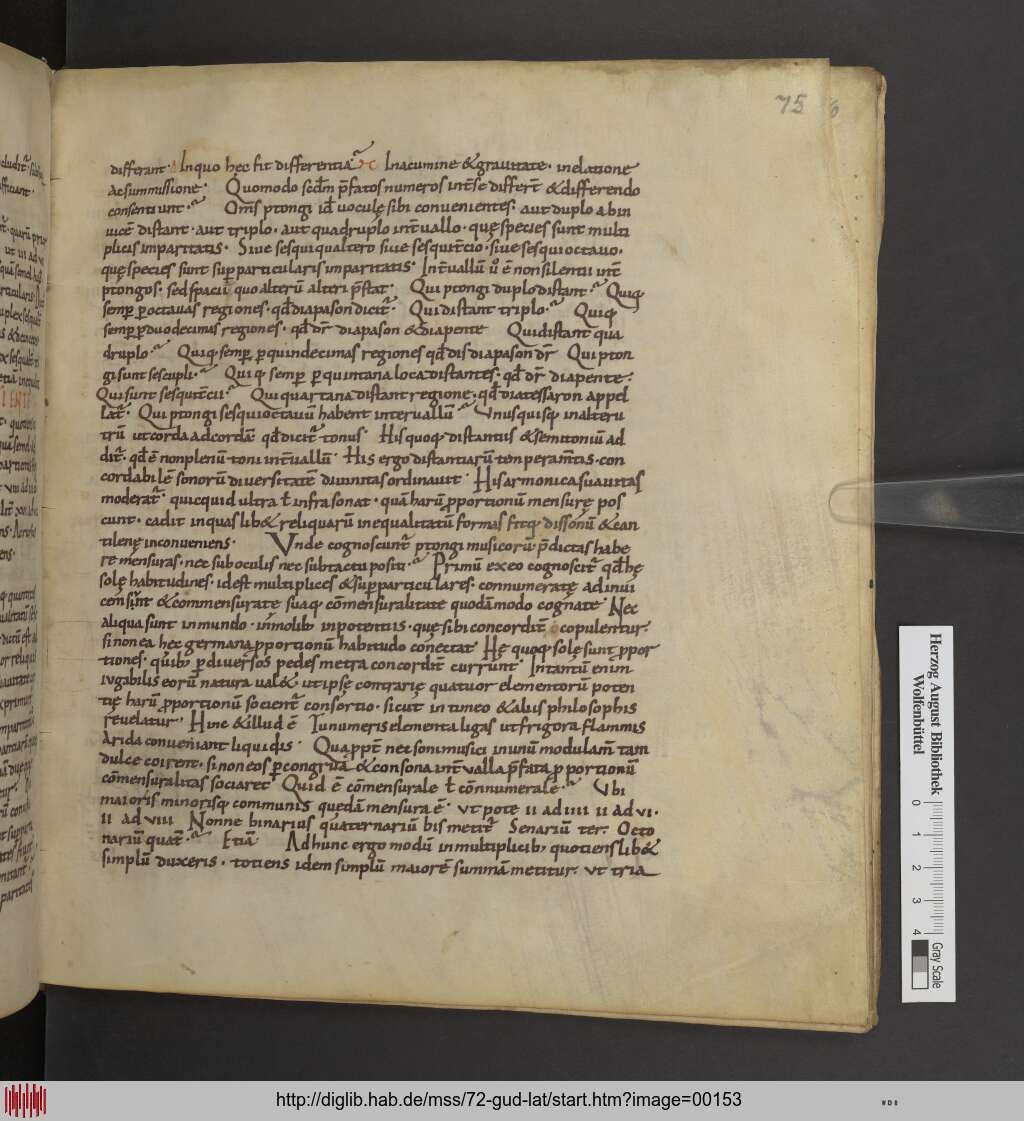 75
differant. In quo hec fit differentia. In acumine & gravitate. in elatione
ac summissione. Quomodo scdm p̄fatos numeros int̄se differt̄ & differendo
consentiunt. Om̄s ptongi id uoculę sibi convenientes. aut duplo ab in
uicē distant. aut triplo. aut quadruplo int̄uallo. quę species sunt multi
plicis imparitatis. Siue sesqui qualtero siue sesqut̄cio. siue sesqui octauo.
quę species sunt sup particularis imparitatis. Int̄uallū ē non silentii int̄
ptongos. sed spaciū quo alterū alteri p̄stat. Qui ptongi duplo distant. Quiq;
semp p octauas regiones. qd̄ diapason dicit̄. Qui distant triplo. Quiq;
semp p duodecimas regiones. qd̄ dr̄ diapason & diapente Qui distant qua
druplo. Quiq; semp p quindecimas regiones qd̄ disdiapason dr̄ Qui pton
gi sunt sescupli. Quiq; semp p quintana loca distantes. qd̄ dr̄ diapente.
Qui sunt sesqut̄cii. Qui quartana distant regione. qd̄ diatessaron appel
lat̄. Qui ptongi sesqui octauū habent interuallū Unus quisq; in alteru
trū ut corda ad cordā qd̄ dicit̄ tonus. His quoq; distantiis & semitoniū ad
dit̄. qd̄ ē non plenū toni int̄uallū. His ergo distantiarū temperam̄tis. con
cordabilē sonorū diuersitatē diuinitas ordinauit. His armonica suauitas
moderat̄. quicquid ultra ł infra sonat. quā harū pportionū mensurę pos
cunt. cadit in quaslib& reliquarū inequalitatū formas fitq; dissonū & can
tilenę inconueniens. Unde cognoscunt̄ ptongi musicorū p̄dictas habe
re mensuras. nec sub oculis nec sub tactu positi. Primū ex eo cognoscit̄ qd̄ hę
solę habitudines. id est multiplices & supparticulares. connumeratę ad inui
cē sint & commensuratę suaq; cōmensuralitate quodāmodo cognatę Nec
aliqua sunt in mundo. in molib; in potentiis. quę sibi concordit̄ copulentur.
si non ea hec germana pportionū habitudo conectat Hę quoq; solę sunt ppor
tiones. quib; p diuersos pedes metra concordit̄ currunt. In tantū enim
iugabilis eorū natura ual&. ut ipsę contrarię quatuor elementorū poten
tię harū pportionū socient̄ consortio. sicut in timeo & aliis philosophis
reuelatur. Hinc & illud ē Tu numeris elementa ligas ut frigora flammis
Arida conueniant liquidis. Qua ppt̄ nec soni musici in unū modulam̄ tam
dulce coirent. si non eos p congruā & consona int̄ualla p̄fata pportionū
cōmensuralitas sociaret Quid ē cōmensurale ł cōnnumerale. Ubi
maioris minorisq; communis quedā mensura ē. ut pote II ad IIII II ad VI.
II ad VIII Nonne binarius quaternariū bis metit̄ Senariū ter. Octo
nariū quat̄. Etiā Ad hunc ergo modū in multiplicib; quotienslib&
simplū duxeris. totiens idem simplū maiorē summā metitur. ut tria
Herzog August Bibliothek
Wolfenbüttel
0 1 2 3 4
Gray Scale
http://diglib.hab.de/mss/72-gud-lat/start.htm?image=00153